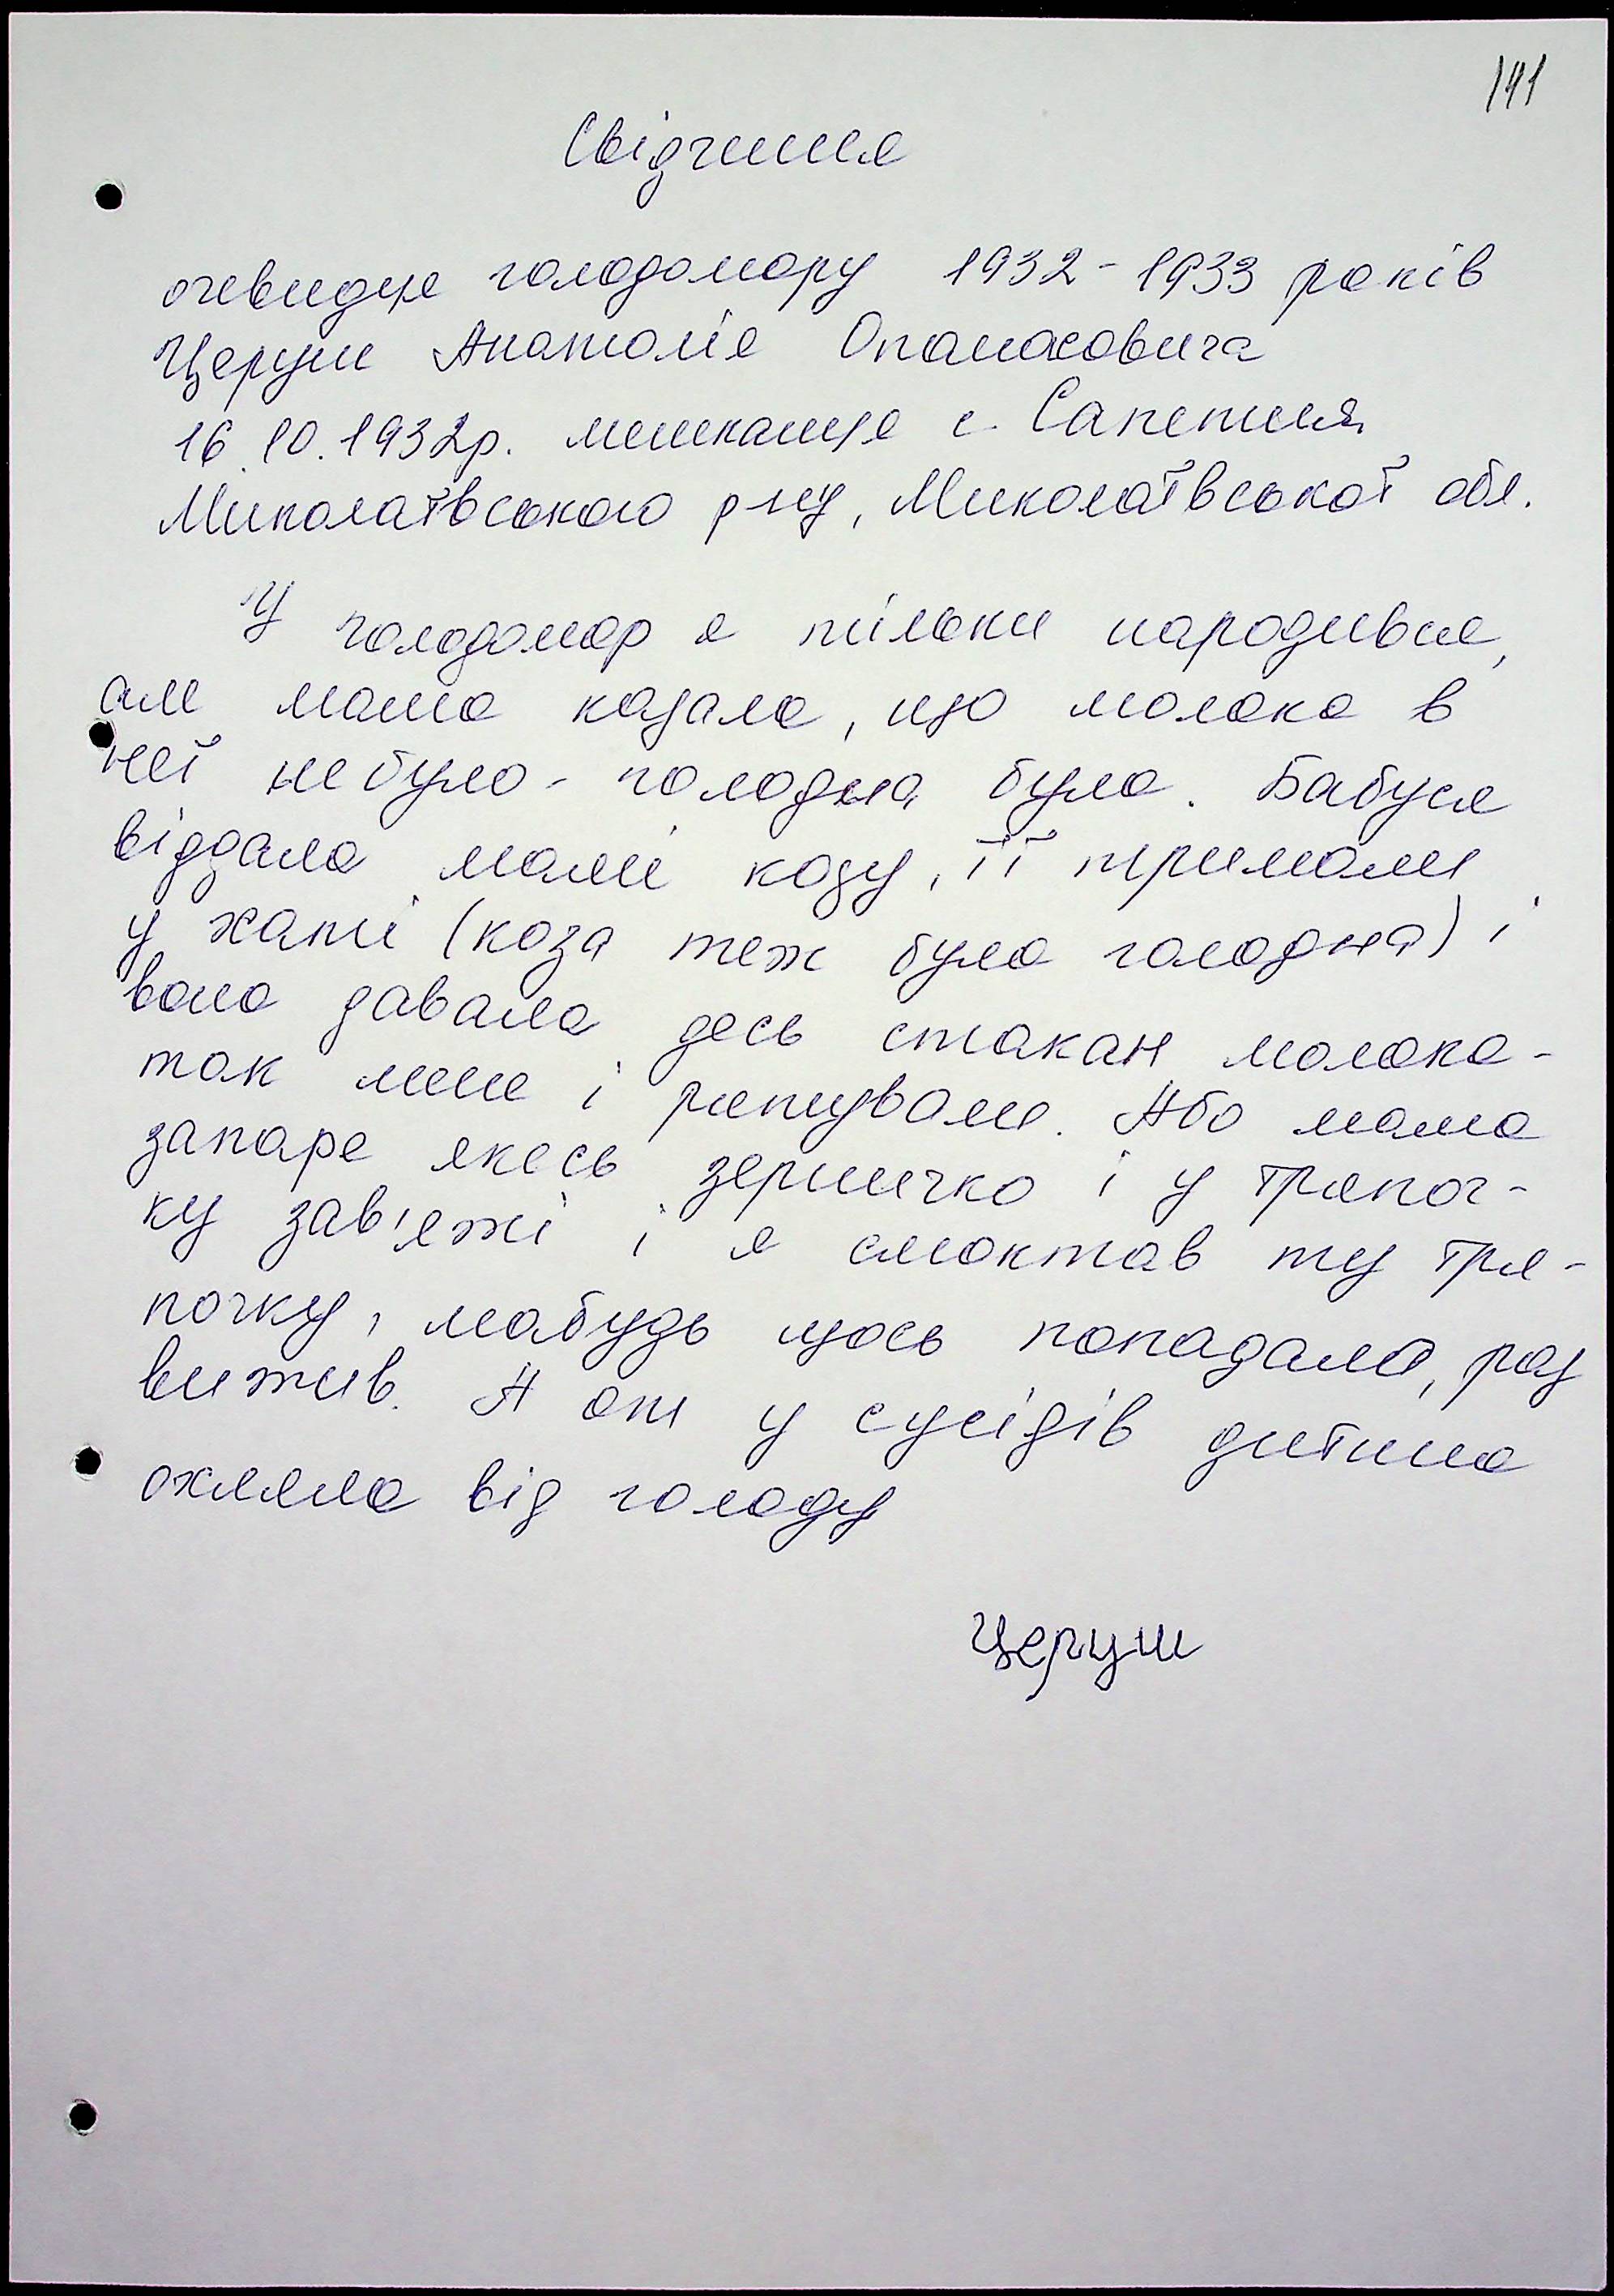 141
Свідчення
очевидця голодомору 1932-1933 років
Церуш Анатолія Опанасовича
16.10.1932р. мешканця с. Сапетня
Миколаївського р-ну, Миколаївської обл.
У голодомор я тільки народився,
але мама казала, що молока в
неї не було - голодна була. Бабуся
віддала мамі козу, її тримали
у хаті (коза теж була голодна) і
вона давала десь стакан молока -
так мене і рятували. Або мама
запаре якесь зернечко і у тряпоч-
ку зав'яжі і я смоктав ту тря-
почку, мабудь щось попадало, раз
вижив. А от у сусідів дитина
охляла від голоду
Церуш